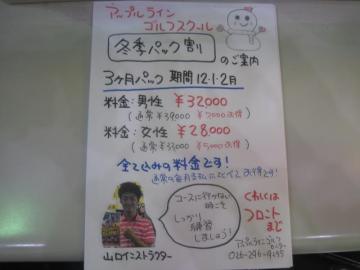 アップルライン
ゴルフスクール
冬季パック割
のご案内
3ヶ月パック 期間 12・1・2月
料金:男性 ¥32000
(通常¥39000 ¥7000お得)
料金:女性 ¥28000
(通常¥33000 ¥5000お得)
全て込みの料金です!
通常の毎月支払いにくらべてお得です!
コースに行かない
時こそ
しっかり
練習
しましょう!
くわしくは
フロント
まで
アップルラインゴルフ
センター
026-296-9195
山口インストラクター